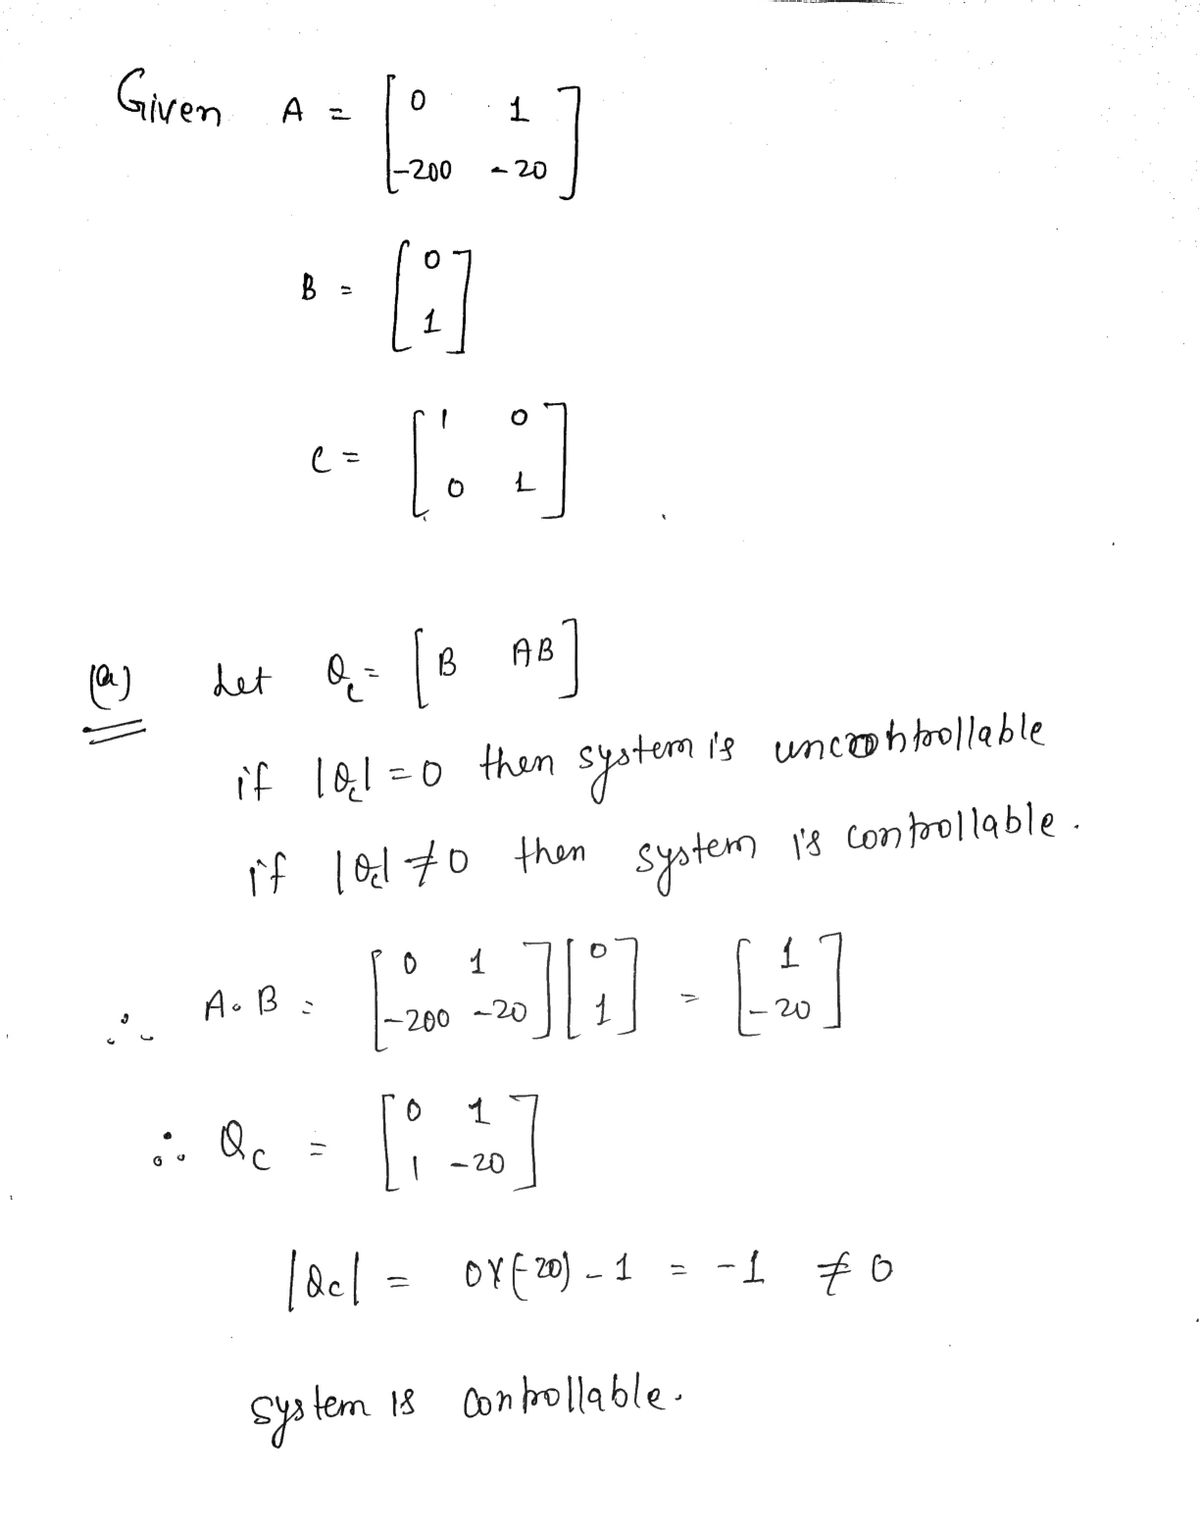 Given A = [ 0 1
-200 -20 ]
B = [ 0
1 ]
C = [ 1 0
0 1 ]
(a) Let Qc = [ B AB ]
if |Qc| = 0 then system is uncontrollable
if |Qc| ≠ 0 then system is controllable.
∴ A.B = [ 0 1
-200 -20 ] [ 0
1 ] = [ 1
-20 ]
∴ Qc = [ 0 1
1 -20 ]
|Qc| = 0×(-20) - 1 = -1 ≠ 0
system is controllable.